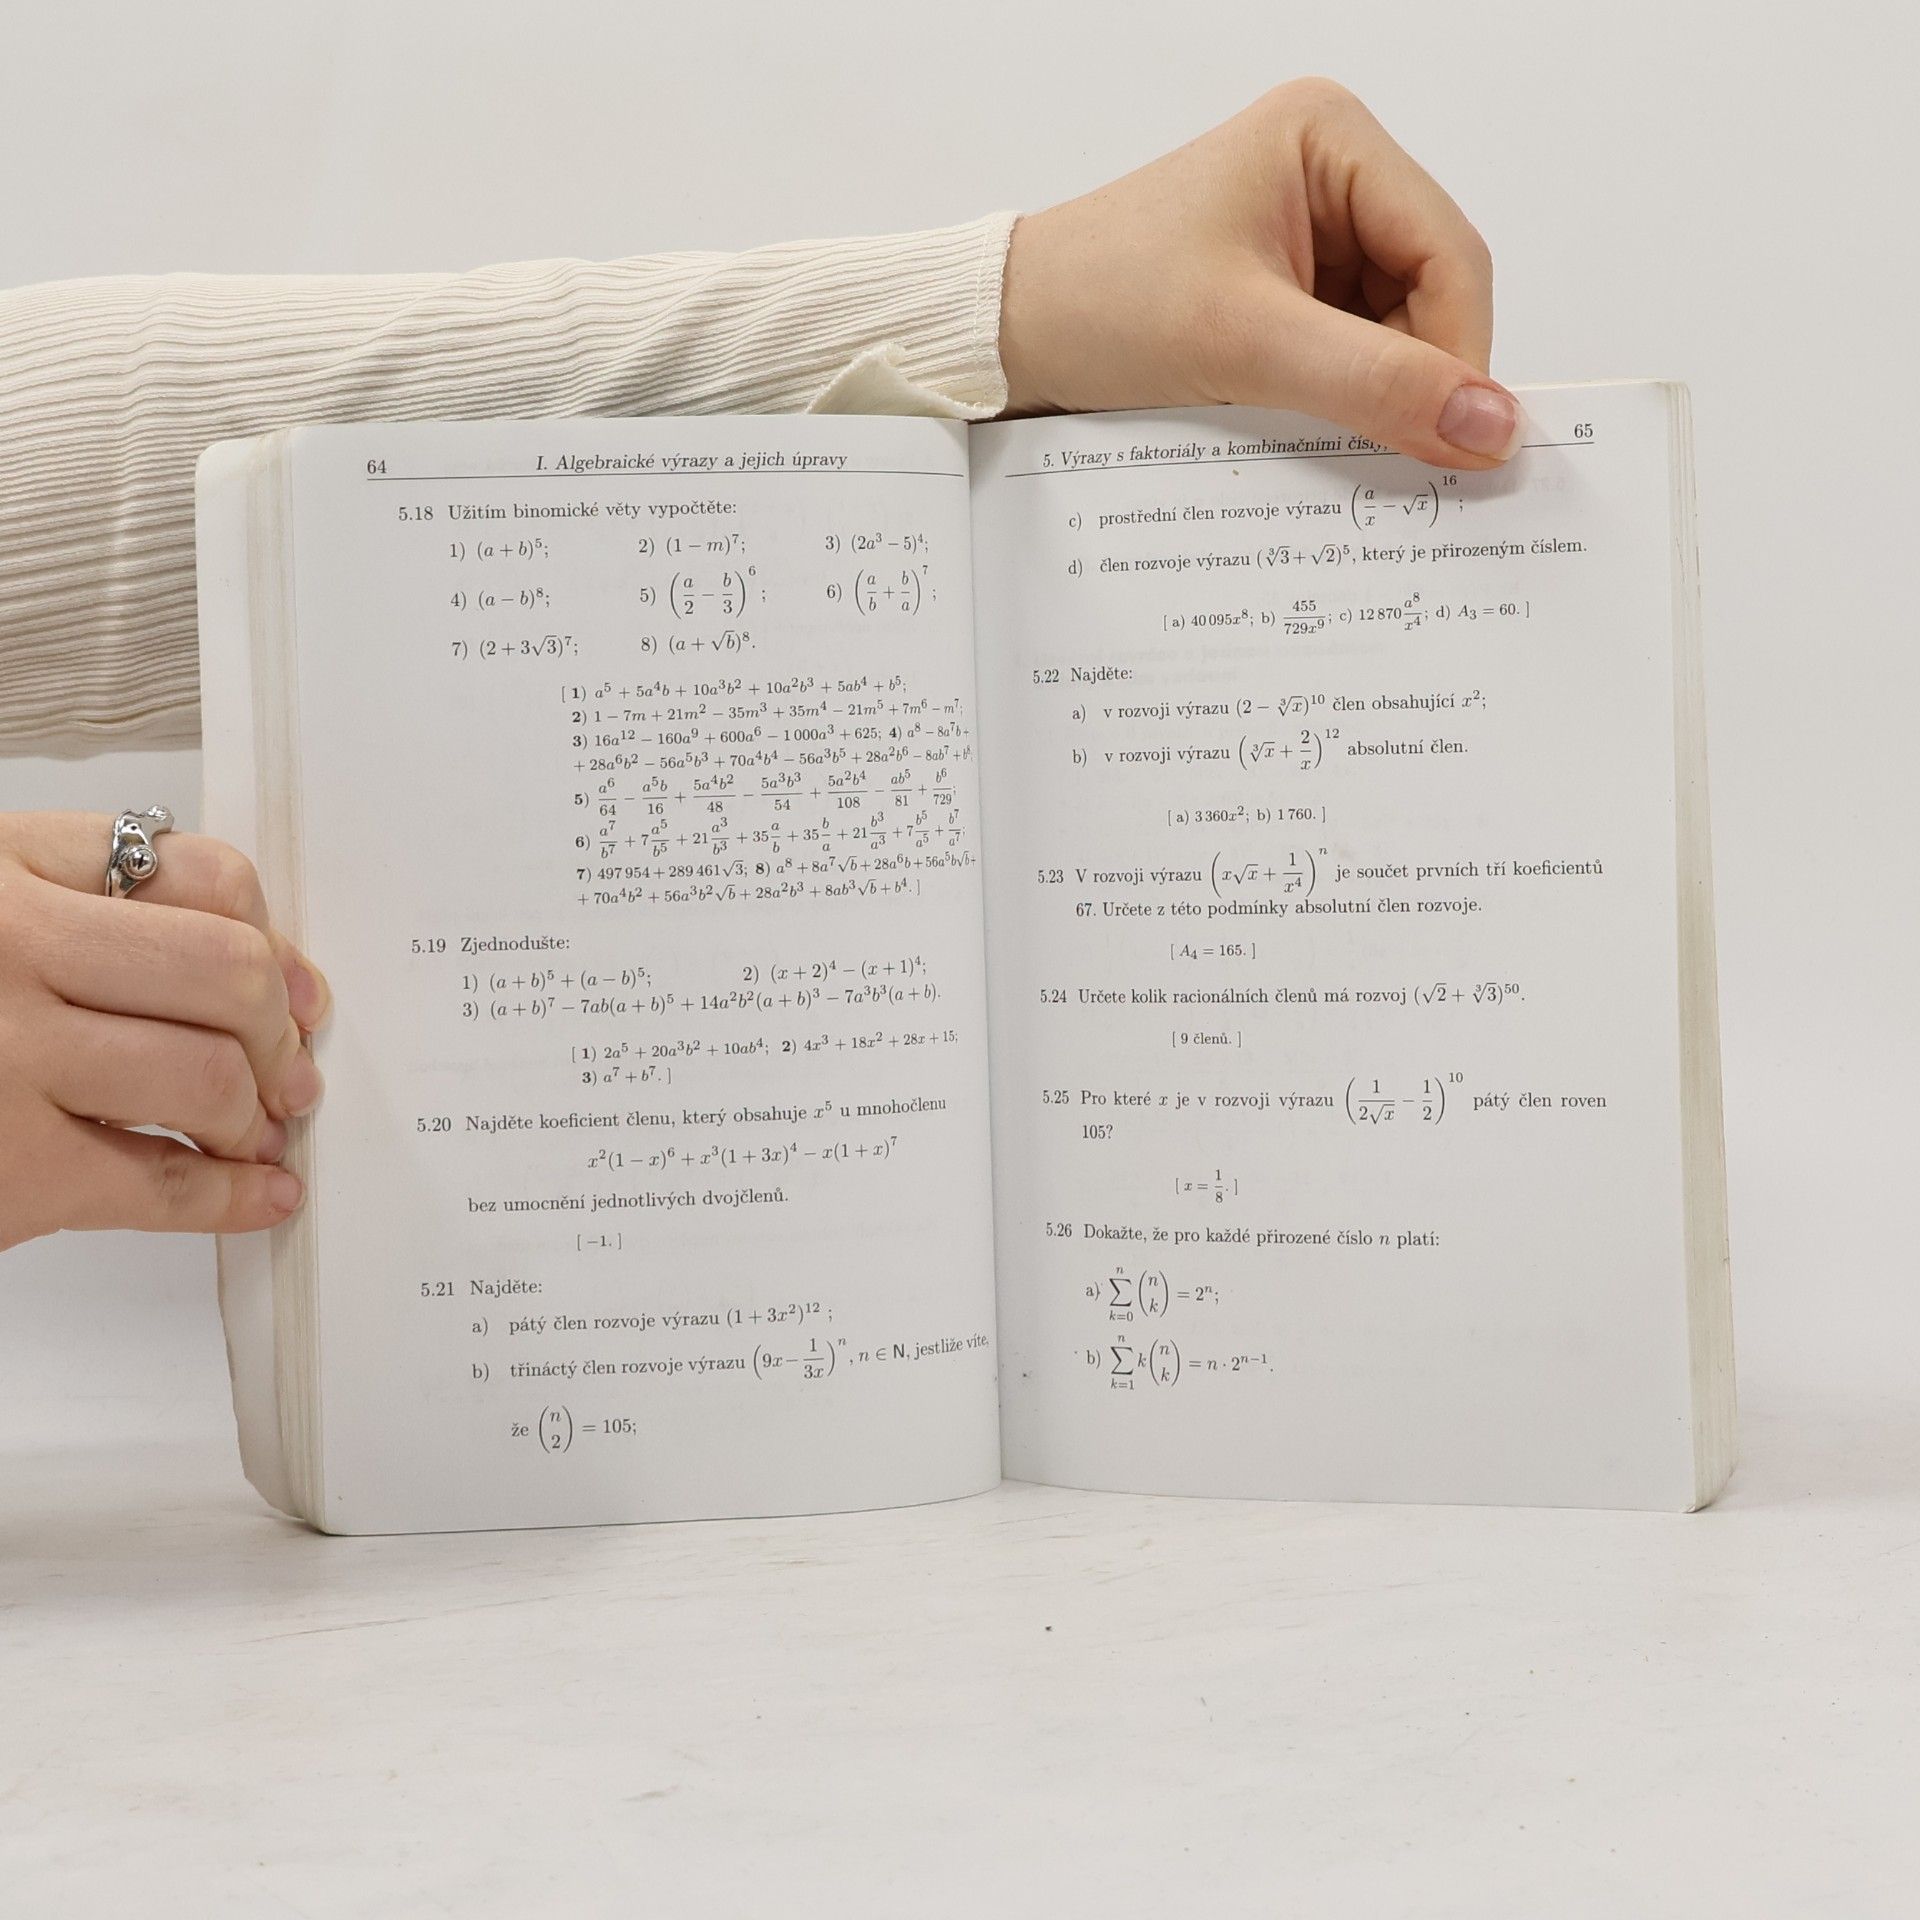 64 I. Algebraické výrazy a jejich úpravy
5.18 Užitím binomické věty vypočtěte:
1) (a + b)⁵; 2) (1 − m)⁷; 3) (2a³ − 5)⁴;
4) (a − b)⁸; 5) (a/2 − b/3)⁶; 6) (a/b + b/a)⁷;
7) (2 + 3√3)⁷; 8) (a + √b)⁸.
[ 1) a⁵ + 5a⁴b + 10a³b² + 10a²b³ + 5ab⁴ + b⁵;
2) 1 − 7m + 21m² − 35m³ + 35m⁴ − 21m⁵ + 7m⁶ − m⁷;
3) 16a¹² − 160a⁹ + 600a⁶ − 1 000a³ + 625; 4) a⁸ − 8a⁷b +
+ 28a⁶b² − 56a⁵b³ + 70a⁴b⁴ − 56a³b⁵ + 28a²b⁶ − 8ab⁷ + b⁸;
5) a⁶/64 − a⁵b/16 + 5a⁴b²/48 − 5a³b³/54 + 5a²b⁴/108 − ab⁵/81 + b⁶/729;
6) a⁷/b⁷ + 7a⁵/b⁵ + 21a³/b³ + 35a/b + 35b/a + 21b³/a³ + 7b⁵/a⁵ + b⁷/a⁷;
7) 497 954 + 289 461√3; 8) a⁸ + 8a⁷√b + 28a⁶b + 56a⁵b√b +
+ 70a⁴b² + 56a³b²√b + 28a²b³ + 8ab³√b + b⁴. ]
5.19 Zjednodušte:
1) (a + b)⁵ + (a − b)⁵; 2) (x + 2)⁴ − (x + 1)⁴;
3) (a + b)⁷ − 7ab(a + b)⁵ + 14a²b²(a + b)³ − 7a³b³(a + b).
[ 1) 2a⁵ + 20a³b² + 10ab⁴; 2) 4x³ + 18x² + 28x + 15;
3) a⁷ + b⁷. ]
5.20 Najděte koeficient členu, který obsahuje x⁵ u mnohočlenu
x²(1 − x)⁶ + x³(1 + 3x)⁴ − x(1 + x)⁷
bez umocnění jednotlivých dvojčlenů.
[ −1. ]
5.21 Najděte:
a) pátý člen rozvoje výrazu (1 + 3x²)¹² ;
b) třináctý člen rozvoje výrazu (9x − 1/3x)ⁿ, n ∈ N, jestliže víte,
že (n 2) = 105;
5. Výrazy s faktoriály a kombinačními 65
c) prostřední člen rozvoje výrazu (a/x − √x)¹⁶;
d) člen rozvoje výrazu (∛3 + √2)⁵, který je přirozeným číslem.
[ a) 40 095x⁸; b) 455/729x⁹; c) 12 870 a⁸/x⁴; d) A₃ = 60. ]
5.22 Najděte:
a) v rozvoji výrazu (2 − ∛x)¹⁰ člen obsahující x²;
b) v rozvoji výrazu (∛x + 2/x)¹² absolutní člen.
[ a) 3 360x²; b) 1 760. ]
5.23 V rozvoji výrazu (x√x + 1/x⁴)ⁿ je součet prvních tří koeficientů
67. Určete z této podmínky absolutní člen rozvoje.
[ A₄ = 165. ]
5.24 Určete kolik racionálních členů má rozvoj (√2 + ∛3)⁵⁰.
[ 9 členů. ]
5.25 Pro které x je v rozvoji výrazu (1/2√x − 1/2)¹⁰ pátý člen roven
105?
[ x = 1/8. ]
5.26 Dokažte, že pro každé přirozené číslo n platí:
a) ∑ₖ₌₀ⁿ (n k) = 2ⁿ;
b) ∑ₖ₌₁ⁿ k(n k) = n · 2ⁿ⁻¹.